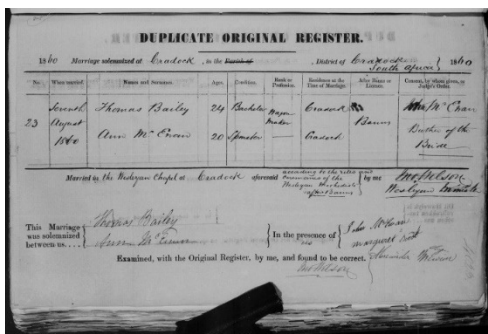 DUPLICATE ORIGINAL REGISTER.
1860 Marriage solemnized at Cradock, in the Parish of , District of Cradock South Africa 1860
No. When married. Names and Surnames. Ages. Condition. Rank or Profession. Residence at the Time of Marriage. After Banns or Licence. Consent, by whom given, or Judge's Order.
23 Seventh August 1860 Thomas Bailey 24 Bachelor Wagon Maker Cradock Banns John McEwan Brother of the Bride
Ann McEwan 20 Spinster — Cradock
Married in the Wesleyan Chapel at Cradock aforesaid according to the rites and ceremonies of the Wesleyan Methodists after Banns by me Jno Wilson
Wesleyan Minister
This Marriage was solemnized between us . . . . Thomas Bailey
Ann McEwan
In the presence of us John McEwan
Margaret
Alexander McEwan
Examined, with the Original Register, by me, and found to be correct.
Jno Wilson